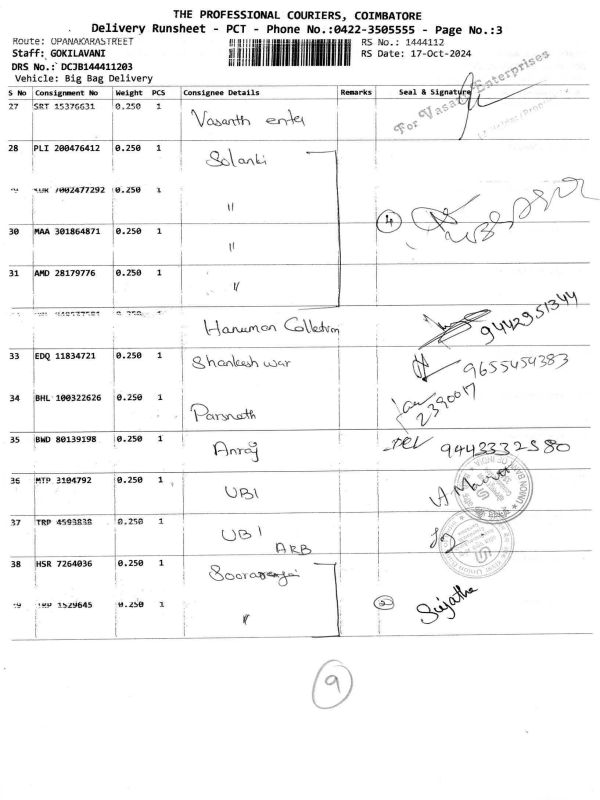 THE PROFESSIONAL COURIERS, COIMBATORE
Delivery Runsheet - PCT - Phone No.:0422-3505555 - Page No.:3
Route: OPANAKARASTREET RS No.: 1444112
Staff: GOKILAVANI RS Date: 17-Oct-2024
DRS No.: DCJB144411203
Vehicle: Big Bag Delivery
S No Consignment No Weight PCS Consignee Details Remarks Seal & Signature
For Vasanth Enterprises
27 SRT 15376631 0.250 1 Vasanth enter
28 PLI 200476412 0.250 1 Solanki
7002477292 0.250 1 "
4
30 MAA 301864871 0.250 1 "
31 AMD 28179776 0.250 1 "
Hanuman Collection 9442951344
33 EDQ 11834721 0.250 1 Shankeshwar 9655454383
34 BHL 100322626 0.250 1 Parsnath 2390017
35 BWD 80139198 0.250 1 Anraj
36 MTP 3104792 0.250 1 UBI
37 TRP 4593838 0.250 1 UBI
ARB
38 HSR 7264036 0.250 1
TRP 1529645 0.250 1 " 2 Sujatha
9